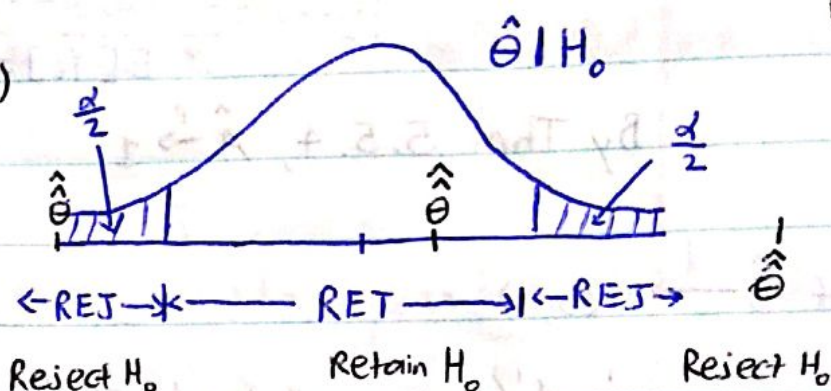 )
θ̂ | H₀
α/2
α/2
θ̂̂
θ̂̂
θ̂̂
←REJ→ ← RET → ←REJ→
Reject H₀ Retain H₀ Reject H₀